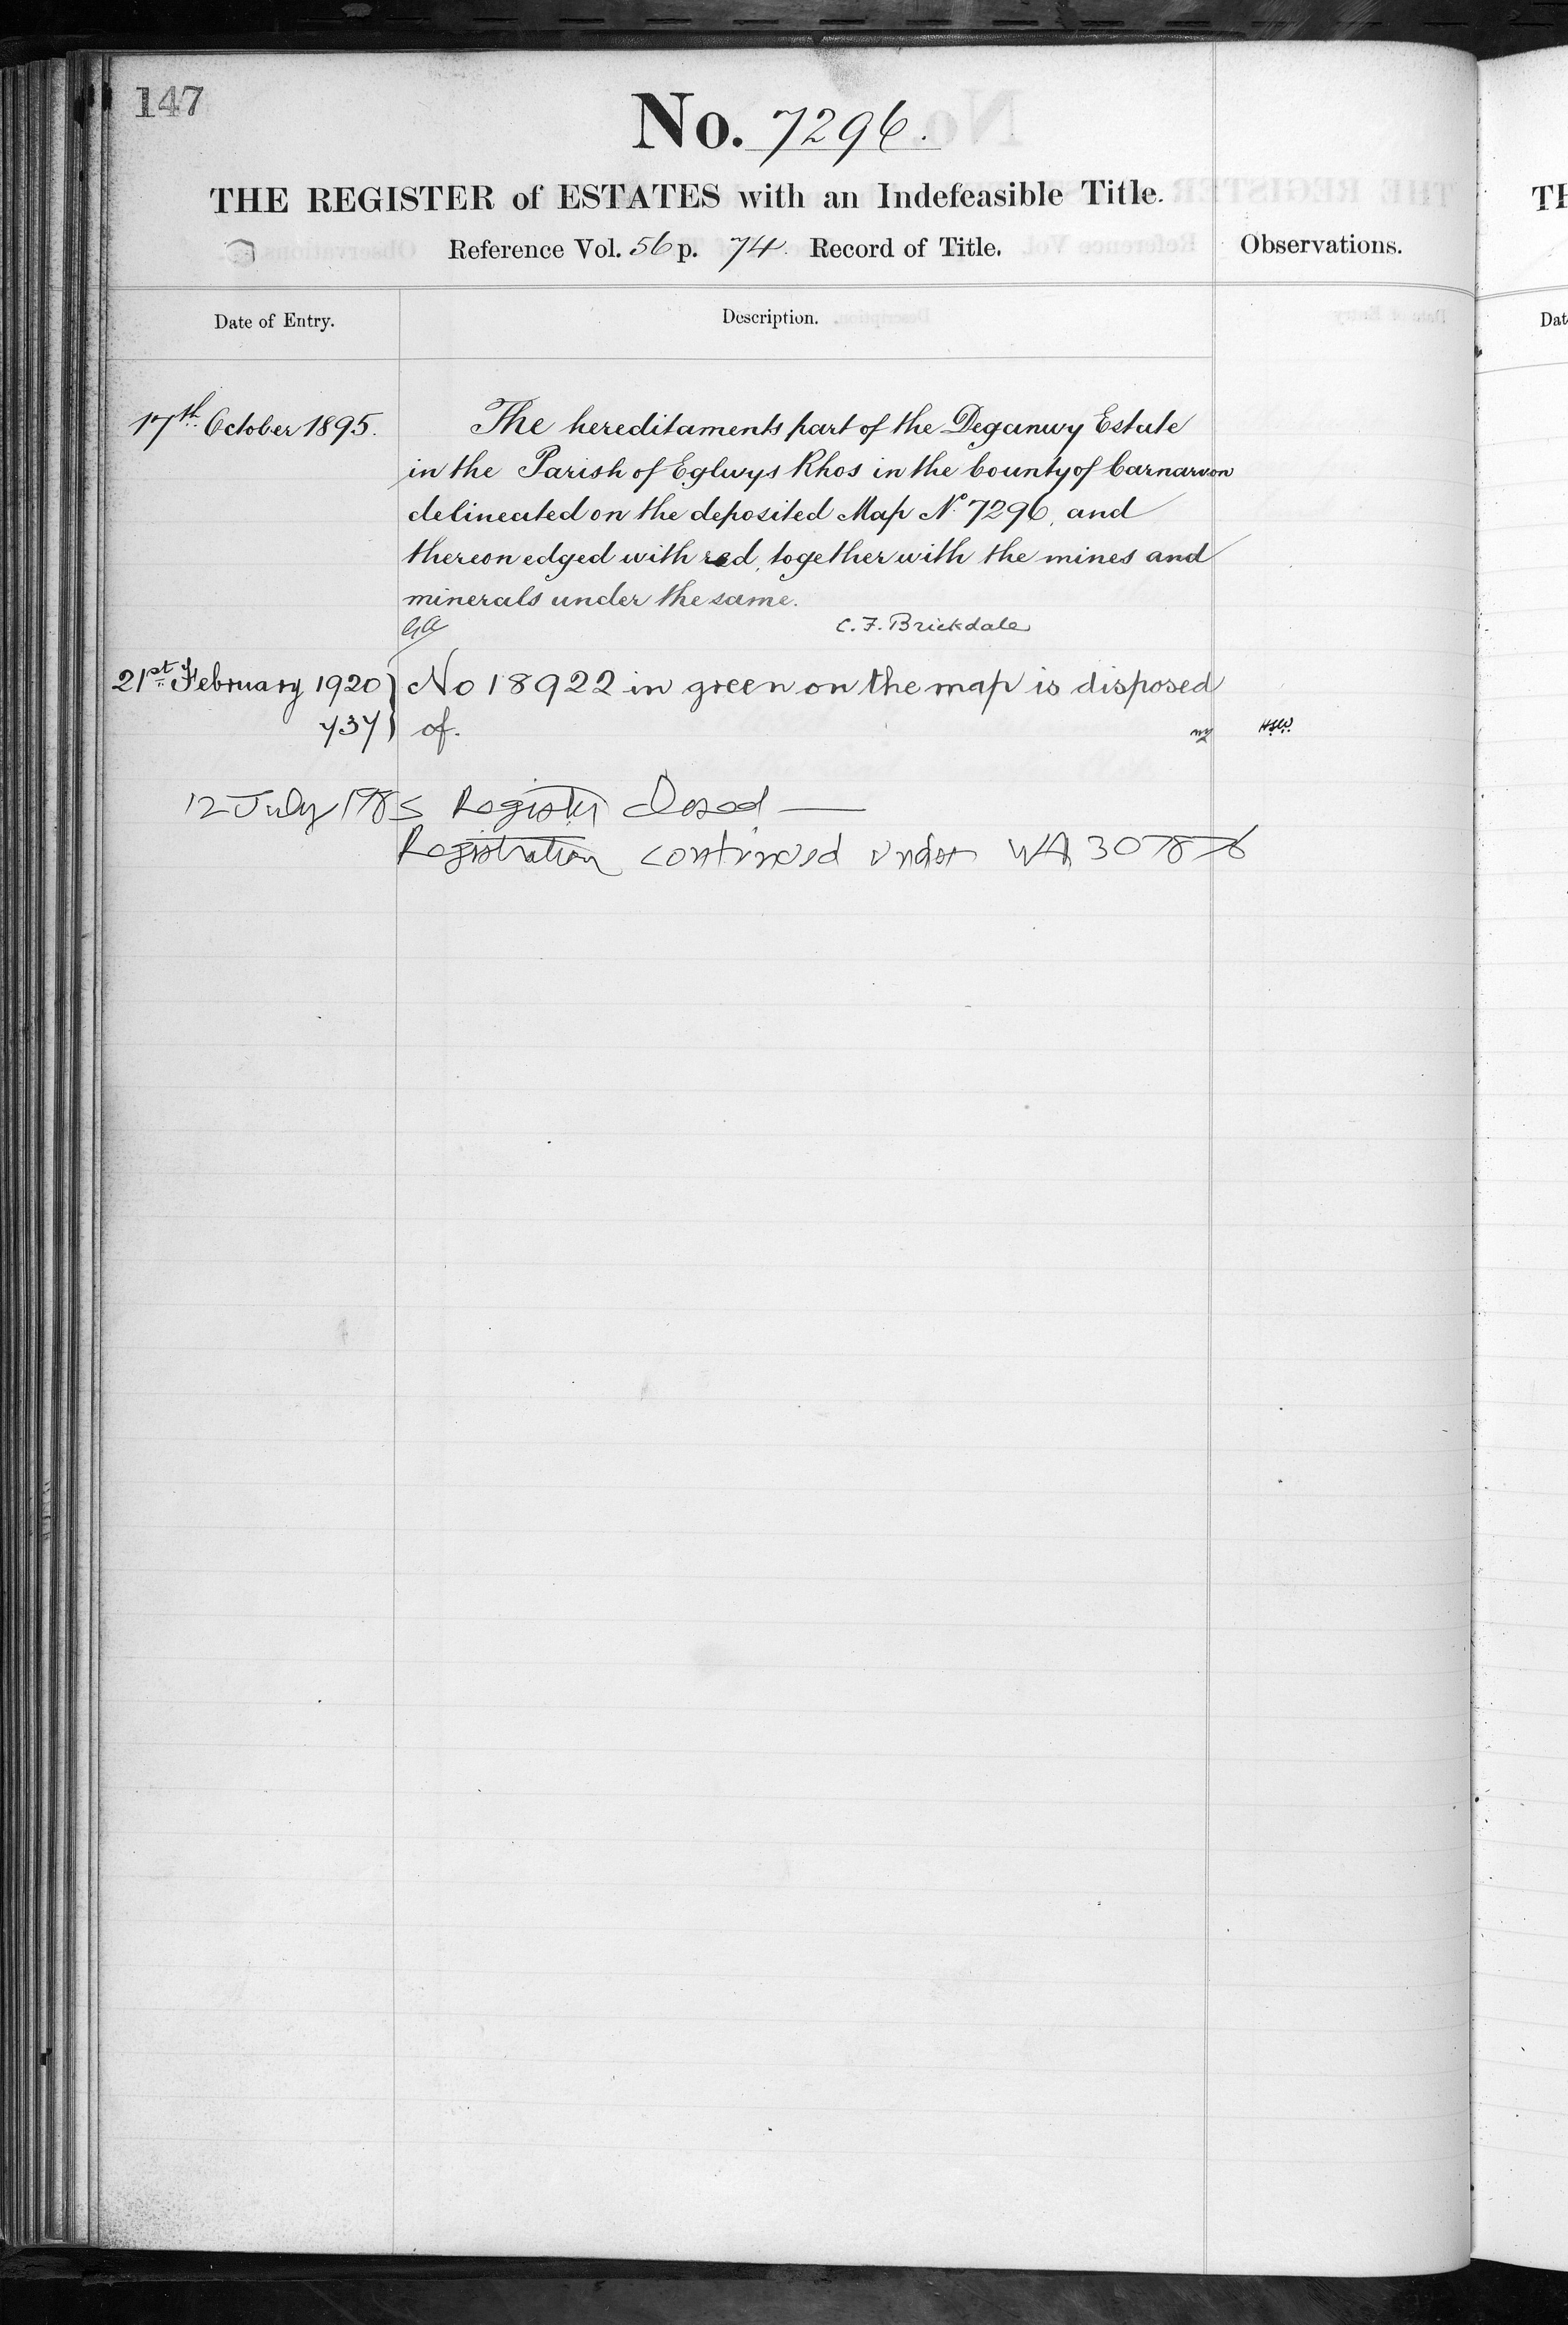 147
No. 7296.
THE REGISTER of ESTATES with an Indefeasible Title.
Reference Vol. 56 p. 74. Record of Title.
Observations.
Date of Entry.
Description.
17th October 1895.
The hereditaments part of the Deganwy Estate
in the Parish of Eglwys Rhos in the County of Carnarvon
delineated on the deposited Map No. 7296, and
thereon edged with red, together with the mines and
minerals under the same.
C. F. Brickdale
21st February 1920
No 18922 in green on the map is disposed
737
of.
12 July 1985 Register closed —
Registration continued under WA 307876